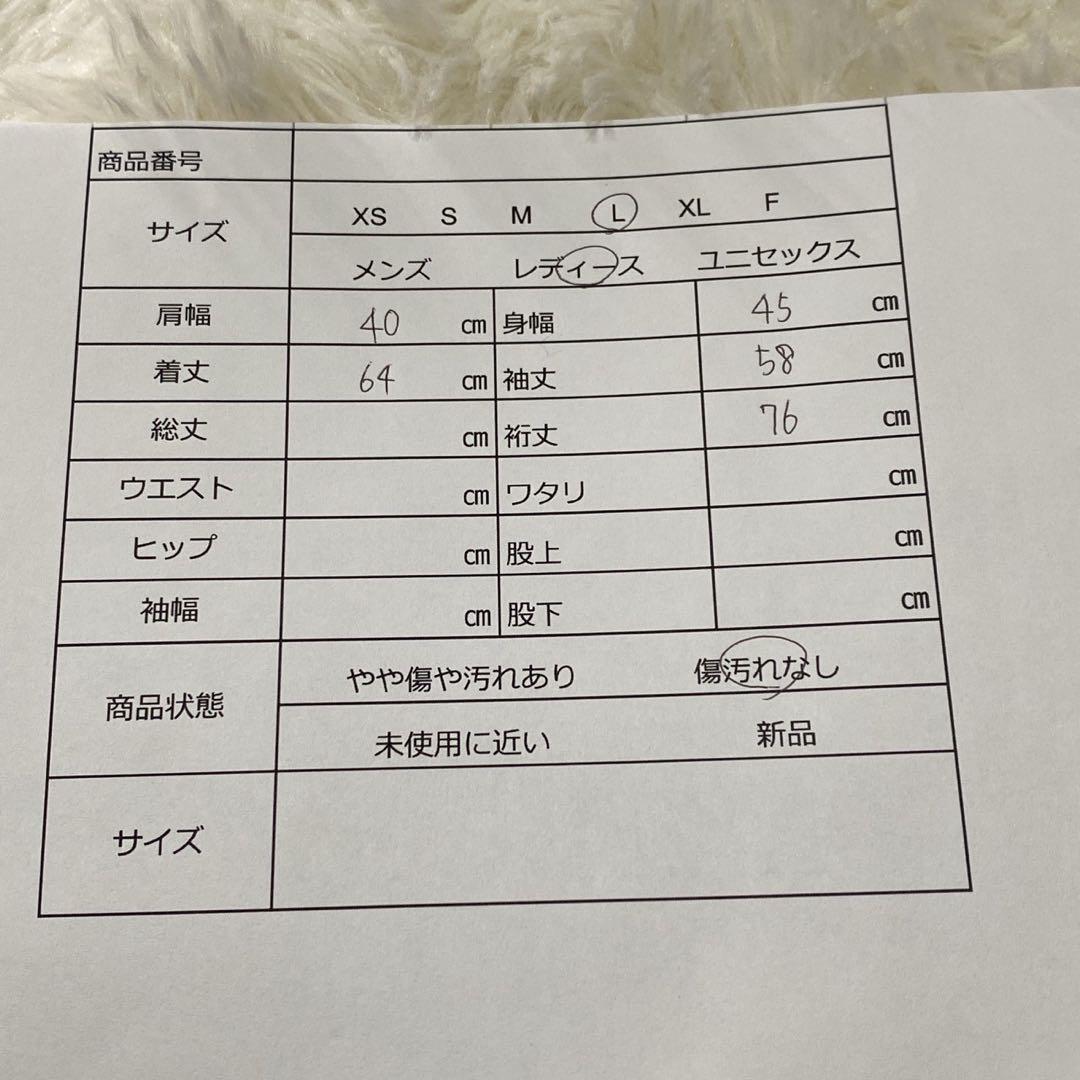 商品番号
サイズ XS S M L XL F
メンズ レディース ユニセックス
肩幅 40 cm 身幅 45 cm
着丈 64 cm 袖丈 58 cm
総丈 cm 裄丈 76 cm
ウエスト cm ワタリ cm
ヒップ cm 股上 cm
袖幅 cm 股下 cm
商品状態 やや傷や汚れあり 傷汚れなし
未使用に近い 新品
サイズ